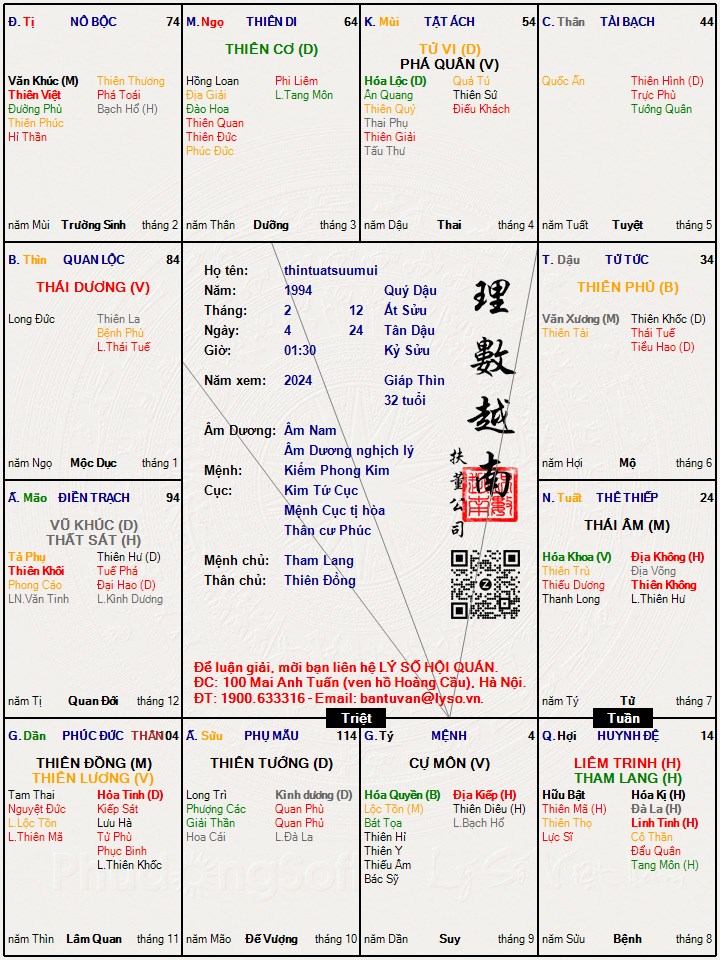 Đ. Tị NÔ BỘC 74
Văn Khúc (M) Thiên Thương
Thiên Việt Phá Toái
Đường Phù Bạch Hổ (H)
Thiên Phúc
Hỉ Thần
năm Mùi Trường Sinh tháng 2
M. Ngọ THIÊN DI 64
THIÊN CƠ (D)
Hồng Loan Phi Liêm
Địa Giải L.Tang Môn
Đào Hoa
Thiên Quan
Thiên Đức
Phúc Đức
năm Thân Dưỡng tháng 3
K. Mùi TẬT ÁCH 54
TỬ VI (D)
PHÁ QUÂN (V)
Hóa Lộc (D) Quả Tú
Ân Quang Thiên Sứ
Thiên Quý Điếu Khách
Thai Phụ
Thiên Giải
Tấu Thư
năm Dậu Thai tháng 4
C. Thân TÀI BẠCH 44
Quốc Ấn Thiên Hình (D)
Trực Phù
Tướng Quân
năm Tuất Tuyệt tháng 5
B. Thìn QUAN LỘC 84
THÁI DƯƠNG (V)
Long Đức Thiên La
Bệnh Phù
L.Thái Tuế
năm Ngọ Mộc Dục tháng 1
Họ tên: thintuatsuumui
Năm: 1994 Quý Dậu
Tháng: 2 12 Ất Sửu
Ngày: 4 24 Tân Dậu
Giờ: 01:30 Kỷ Sửu
Năm xem: 2024 Giáp Thìn
32 tuổi
Âm Dương: Âm Nam
Âm Dương nghịch lý
Mệnh: Kiếm Phong Kim
Cục: Kim Tứ Cục
Mệnh Cục tị hòa
Thân cư Phúc
Mệnh chủ: Tham Lang
Thân chủ: Thiên Đồng
理數越南
扶董公司
Để luận giải, mời bạn liên hệ LÝ SỐ HỘI QUÁN.
ĐC: 100 Mai Anh Tuấn (ven hồ Hoàng Cầu), Hà Nội.
ĐT: 1900.633316 - Email: bantuvan@lyso.vn.
T. Dậu TỬ TỨC 34
THIÊN PHỦ (B)
Văn Xương (M) Thiên Khốc (D)
Thiên Tài Thái Tuế
Tiểu Hao (D)
năm Hợi Mộ tháng 6
Ấ. Mão ĐIỀN TRẠCH 94
VŨ KHÚC (D)
THẤT SÁT (H)
Tả Phụ Thiên Hư (D)
Thiên Khôi Tuế Phá
Phong Cáo Đại Hao (D)
LN.Văn Tinh L.Kình Dương
năm Tị Quan Đới tháng 12
N. Tuất THÊ THIẾP 24
THÁI ÂM (M)
Hóa Khoa (V) Địa Không (H)
Thiên Trù Địa Võng
Thiếu Dương Thiên Không
Thanh Long L.Thiên Hư
năm Tý Tử tháng 7
Triệt
Tuần
G. Dần PHÚC ĐỨC THÂN 104
THIÊN ĐỒNG (M)
THIÊN LƯƠNG (V)
Tam Thai Hỏa Tinh (D)
Nguyệt Đức Kiếp Sát
L.Lộc Tồn Lưu Hà
L.Thiên Mã Tử Phù
Phục Binh
L.Thiên Khốc
năm Thìn Lâm Quan tháng 11
Ấ. Sửu PHỤ MẪU 114
THIÊN TƯỚNG (D)
Long Trì Kình dương (D)
Phượng Các Quan Phù
Giải Thần Quan Phủ
Hoa Cái L.Đà La
năm Mão Đế Vượng tháng 10
G. Tý MỆNH 4
CỰ MÔN (V)
Hóa Quyền (B) Địa Kiếp (H)
Lộc Tồn (M) Thiên Diêu (H)
Bát Tọa L.Bạch Hổ
Thiên Hỉ
Thiên Y
Thiếu Âm
Bác Sỹ
năm Dần Suy tháng 9
Q. Hợi HUYNH ĐỆ 14
LIÊM TRINH (H)
THAM LANG (H)
Hữu Bật Hóa Kị (H)
Thiên Mã (H) Đà La (H)
Thiên Thọ Linh Tinh (H)
Lực Sĩ Cô Thần
Đẩu Quân
Tang Môn (H)
năm Sửu Bệnh tháng 8